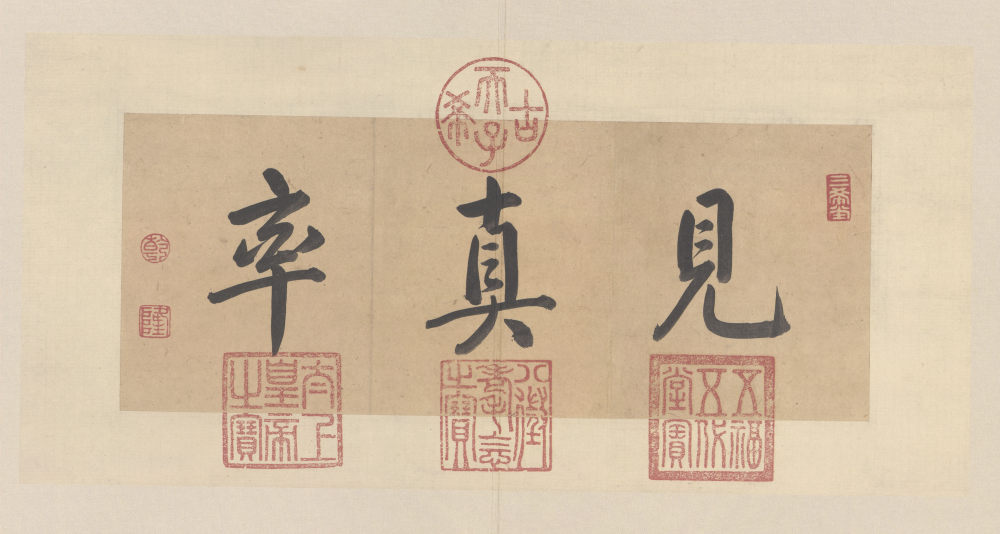 見真率
古希天子
三希堂
五福五代堂寶
八徵耄念之寶
太上皇帝之寶
乾
隆